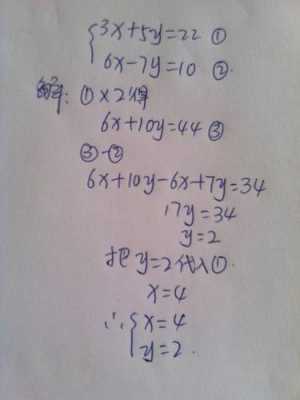 {3x+5y=22 ①
6x-7y=10 ②.
解: ①×2得
6x+10y=44 ③
③-②
6x+10y-6x+7y=34
17y=34
y=2
把y=2代入①.
x=4
∴{x=4
y=2.